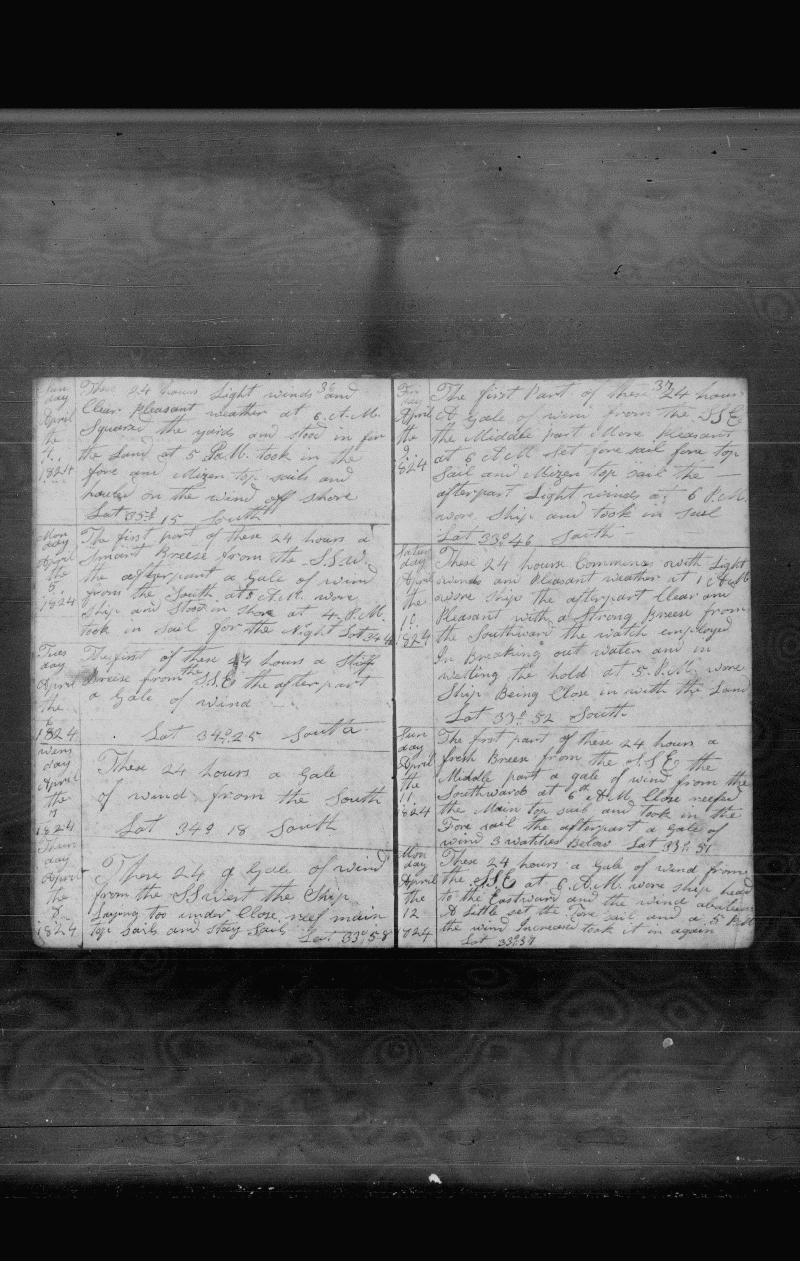 36
Sun
day
April
the
4
1824
These 24 hours Light winds and
Clear Pleasant weather at 6 A.M.
Squared the yards and stood in for
the Land at 5 P.M. took in the
fore and Mizen top sails and
hauled on the wind off shore
Lat 35° 15 South
Mon
day
April
the
5
1824
The first part of these 24 hours a
Smart Breese from the S.S.W.
the afterpart a Gale of wind
from the South at 8 A.M. wore
Ship and Stood in shore at 4 P.M.
took in sail for the Night Lat 34
Tues
day
April
the
6
1824
The first of these 24 hours a Stiff
Breese from the S.S.E the afterpart
a Gale of wind
Lat 34° 25 South
Wens
day
April
the
7
1824
These 24 hours a Gale
of wind from the South
Lat 34° 18 South
Thurs
day
April
the
8
1824
These 24 a Gale of wind
from the SSWest the Ship
Laying too under Close reef main
top Sails and Stay Sails Lat 33° 58
37
Fri
day
April
the
9
1824
The first Part of these 24 hours
A Gale of wind from the SSE
the Middle part More Pleasant
at 6 A M Set fore sail fore top
Sail and Mizen top sail the
afterpart Light winds at 6 P.M.
wore Ship and took in Sail
Lat 33° 46 South
Satur
day
April
the
10
1824
These 24 hours Commences with Light
winds and Pleasant weather at 1 A M
wore ship the afterpart Clear and
Pleasant with a Strong Breese from
the Southward the watch employed
In Breaking out water and in
wetting the hold at 5 P.M. wore
Ship Being Close in with the Land
Lat 33° 52 South
Sun
day
April
the
11
1824
The first part of these 24 hours a
fresh Breese from the S.S.E the
Middle part a gale of wind from the
Southward at 6 A M Close reefed
the Main top sail and took in the
Fore sail the afterpart a Gale of
wind 3 watches Below Lat 33° 51
Mon
day
April
the
12
1724
These 24 hours a Gale of wind from
the SSE at 6 A.M. wore ship head
to the Eastward and the wind abateing
A Little set the Fore sail and a 5 P.M
the wind Increased took it in again
Lat 33° 37